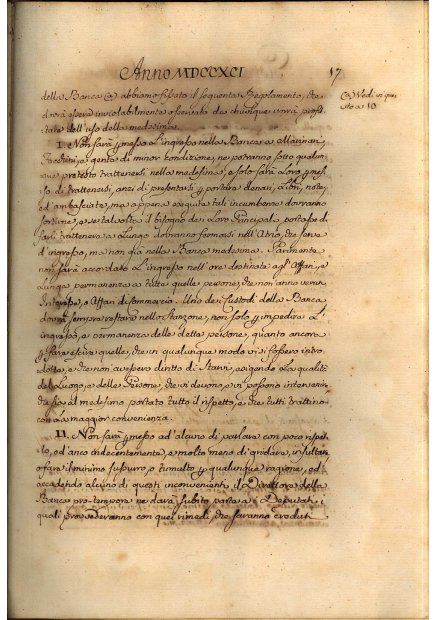 Anno MDCCXCI
17
della Banca (a) abbiamo fissato il seguente Regolamento, che
dovrà essere inviolabilmente osservato da chiunque vorrà profit-
tare dell'uso della medesima.
(a) Vedi in que-
sto a 10
I. Non sarà permesso l'ingresso nella Banca a Marinari,
Facchini, e gente di minor condizione, ne potranno sotto qualun-
que pretesto trattenersi nella medesima, e solo sarà loro permes-
so di trattenersi, anzi di presentarsi per portare denari, Libri, note,
ed ambasciate, ma appena eseguite tali incumbenze dovranno
sortirne, e se talvolta il bisogno dei Loro Principali portasse di
farli trattenere a Lungo dovranno fermarsi nell'Atrio, che serve
d'ingresso, ma non già nella Banca medesima. Parimente
non sarà accordato L'ingresso nell'ore destinate agl'Affari, e
Lunga permanenza a tutte quelle persone, che non anno verun
Interesse, o Affari di Commercio. Uno dei Custodi della Banca
dovrà sempre restare nello Stanzone, non solo per impedire L'in-
gresso, e permanenza delle dette persone, quanto ancora
per fare escire quelle, che in qualunque modo vi si fossero intro-
dotte, e che non avessero diritto di Starvi, esigendo la qualità
del Luogo, e delle Persone, che vi devono, e vi possono intervenire
che sia al medesimo portato tutto il rispetto, e che tutti trattino
con la maggior convenienza.
II. Non sarà permesso ad alcuno di parlare con poco rispet-
to, ed anco indecentemente, e molto meno di gridare, insultare,
o fare il minimo sussurro, o tumulto per qualunque ragione, ed
accadendo alcuno di questi inconvenienti il Direttore della
Banca pro-tempore ne darà subito parte ai Deputati, i
quali provvederanno con quei rimedi, che saranno creduti